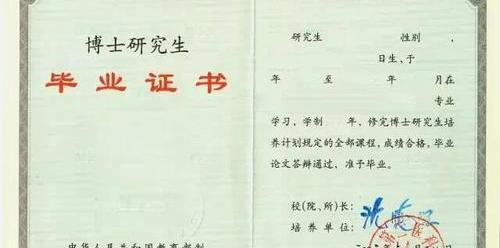 博士研究生
毕业证书
中华人民共和国教育部制
研究生 性别
日生,于
年 至 年 月在
专业
学习,学制 年、修完博士研究生培
养计划规定的全部课程,成绩合格,毕业
论文答辩通过,准予毕业。
校(院、所)长:
培养单位: